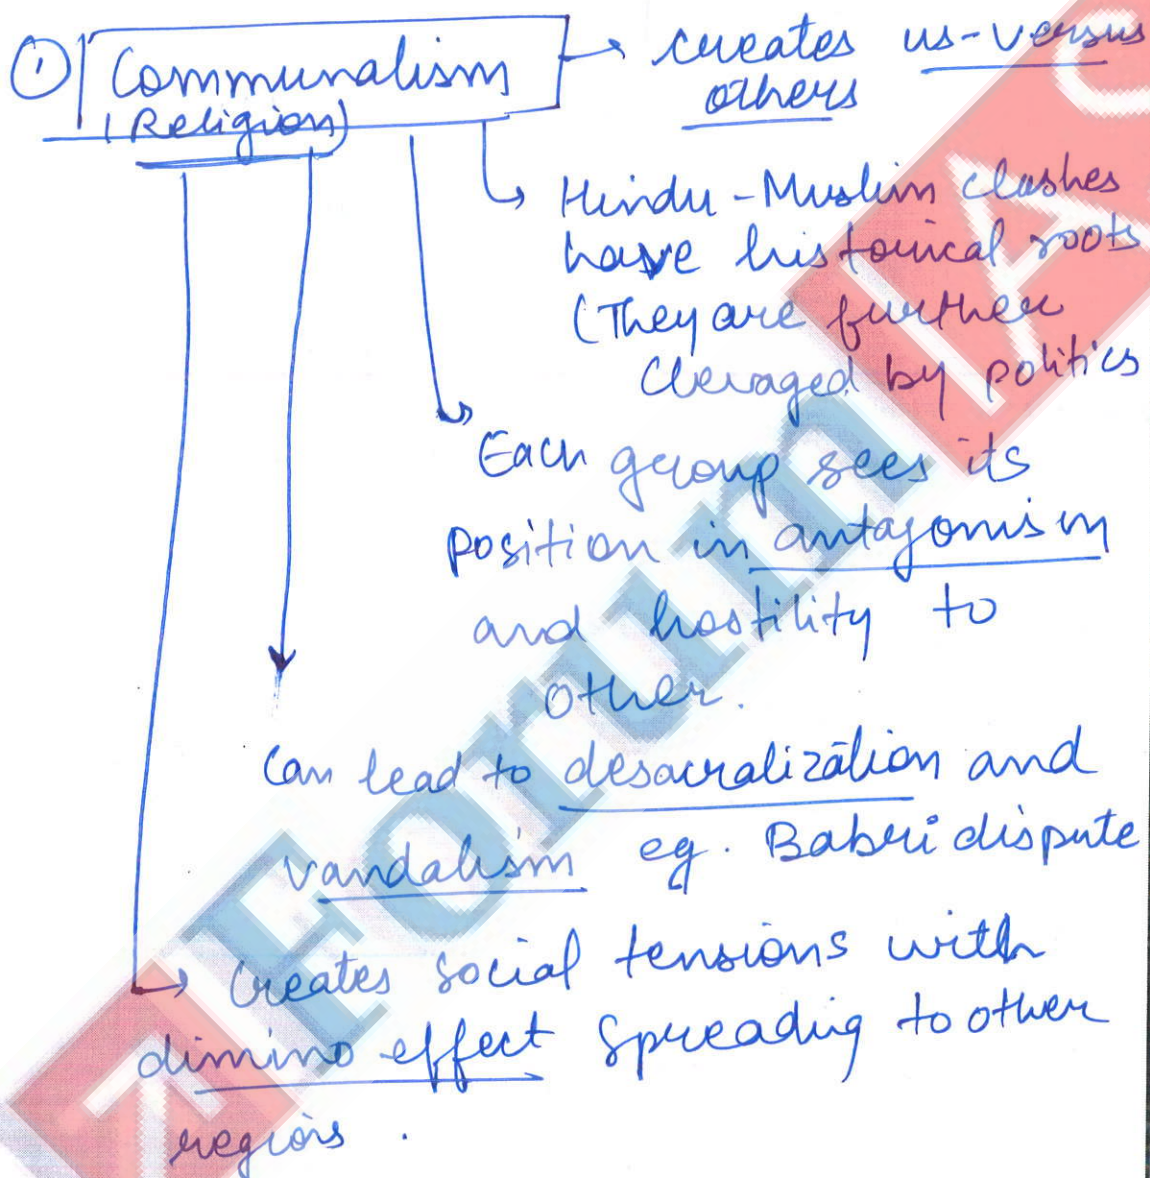 ① Communalism
(Religion)
→ creates us-versus
others
Hindu-Muslim clashes
have historical roots
(They are further
cleavaged by politics
Each group sees its
position in antagonism
and hostility to
other.
Can lead to desacralization and
vandalism eg. Babri dispute
Creates social tensions with
dimino effect spreading to other
regions.
Forum IAS